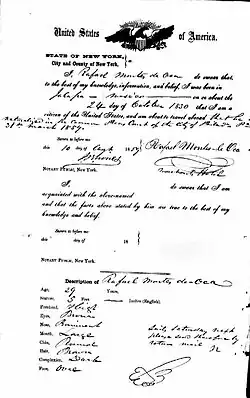 United States of America.
STATE OF NEW YORK,
City and County of New York.
I, Rafael Montes de Oca do swear that
to the best of my knowledge, information, and belief, I was born in
Jalapa - Mexico on or about the
24 day of October 1830 that I am a
citizen of the United States, and am about to travel abroad that he is
naturalized in Common Pleas Court of the City of
31st March 1857.
Sworn to before me
this 10 day Augt 1859 Rafael Montes de Oca
NOTARY PUBLIC, New York.
I do swear that I am
acquainted with the above-named
and that the facts above stated by him are true to the best of my
knowledge and belief.
Sworn to before me
this day of 18
NOTARY PUBLIC, New York.
Description of Rafael Montes de Oca
Age, 29 Years.
Stature, 5 Feet Inches (English).
Forehead, High
Eyes, Brown
Nose,
Mouth, Large
Chin, Round
Hair, Brown
Complexion, Dark
Face, Oval
Sails Saturday next
please send therefore by
return mail